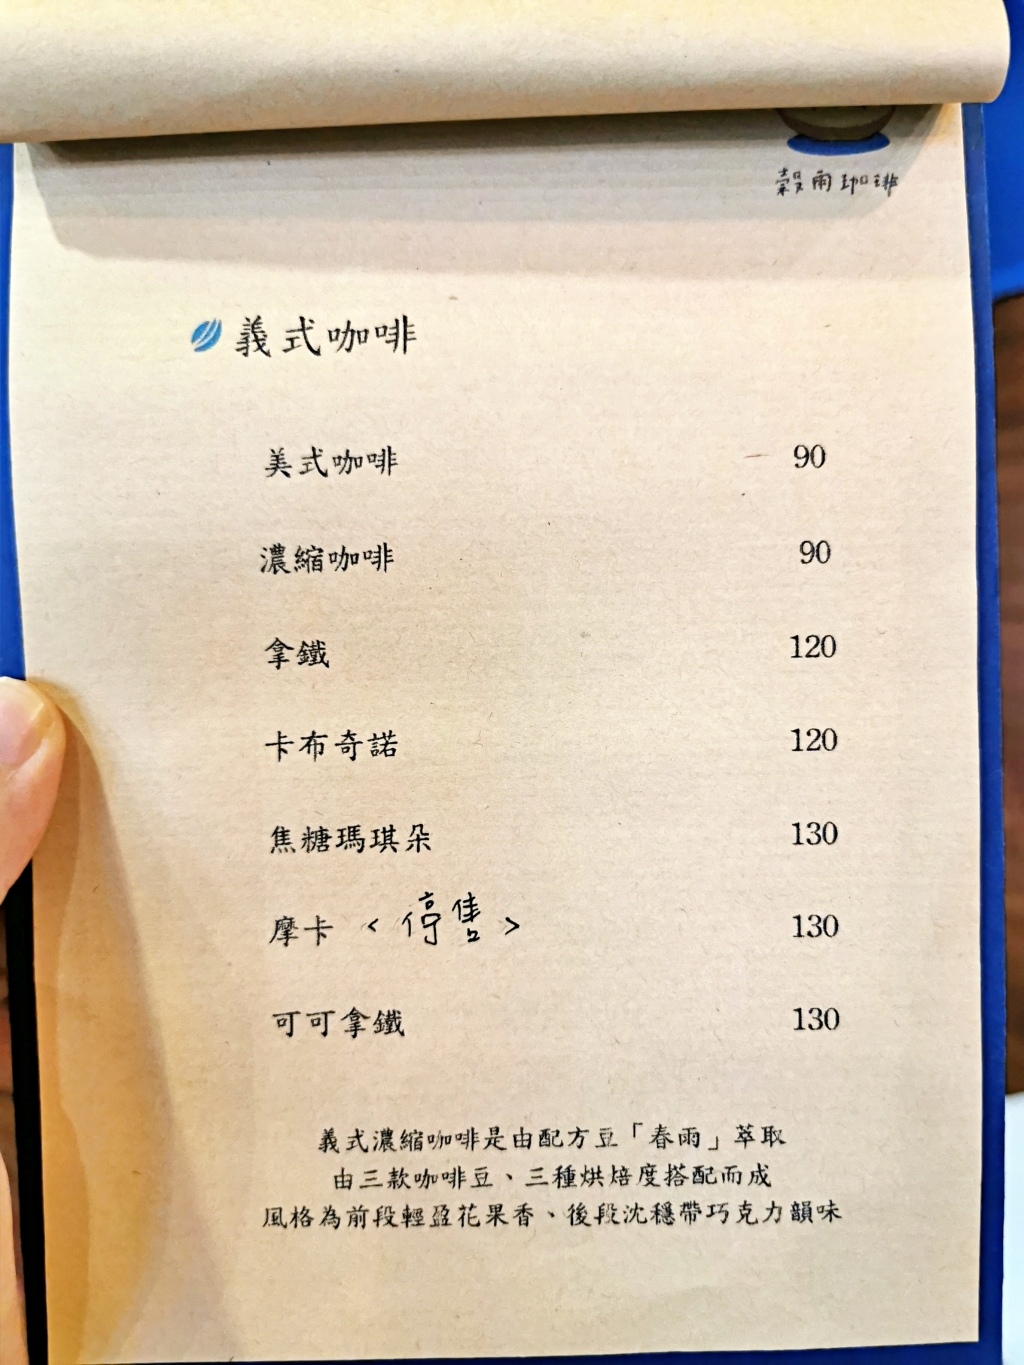 穀雨珈琲
義式咖啡
美式咖啡 90
濃縮咖啡 90
拿鐵 120
卡布奇諾 120
焦糖瑪琪朵 130
摩卡 <停售> 130
可可拿鐵 130
義式濃縮咖啡是由配方豆「春雨」萃取
由三款咖啡豆、三種烘焙度搭配而成
風格為前段輕盈花果香、後段沈穩帶巧克力韻味